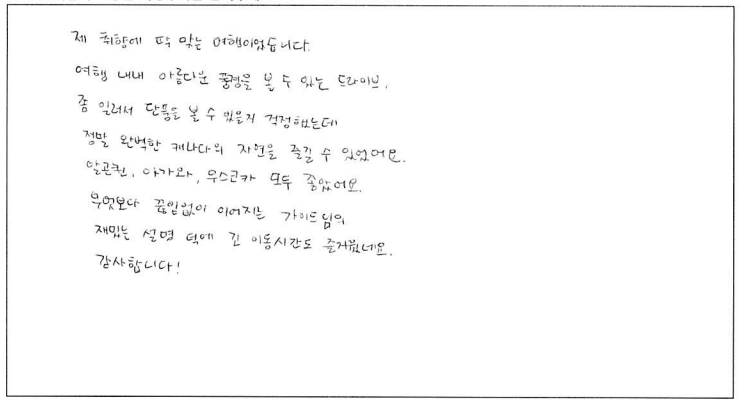 제 취향에 딱 맞는 여행이었습니다.
여행 내내 아름다운 풍경을 볼 수 있는 드라이브,
좀 일러서 단풍을 볼 수 있을지 걱정했는데
정말 완벽한 캐나다의 자연을 즐길 수 있었어요.
알곤퀸, 아가와, 무스코카 모두 좋았어요.
무엇보다 끊임없이 이어지는 가이드님의
재밌는 설명 덕에 긴 이동시간도 즐거웠네요.
감사합니다!